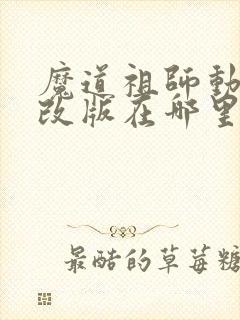 魔道祖师動
改版在哪里
最酷的草莓糖